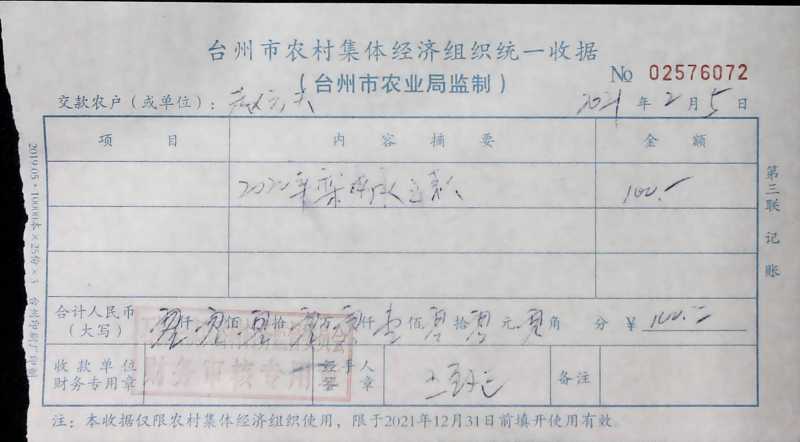 台州市农村集体经济组织统一收据
（台州市农业局监制） No 02576072
交款农户（或单位）： 2021年2月5日
项目 内容摘要 金额
2020年 100.-
合计人民币（大写） 零仟零佰零拾零万零仟壹佰零拾零元零角 分 ￥ 100.00
收款单位财务专用章 经手人签章 备注
财务审核专用
注：本收据仅限农村集体经济组织使用，限于2021年12月31日前填开使用有效。
第三联记账
2019.05·10000本×25份×3 台州印刷厂印制